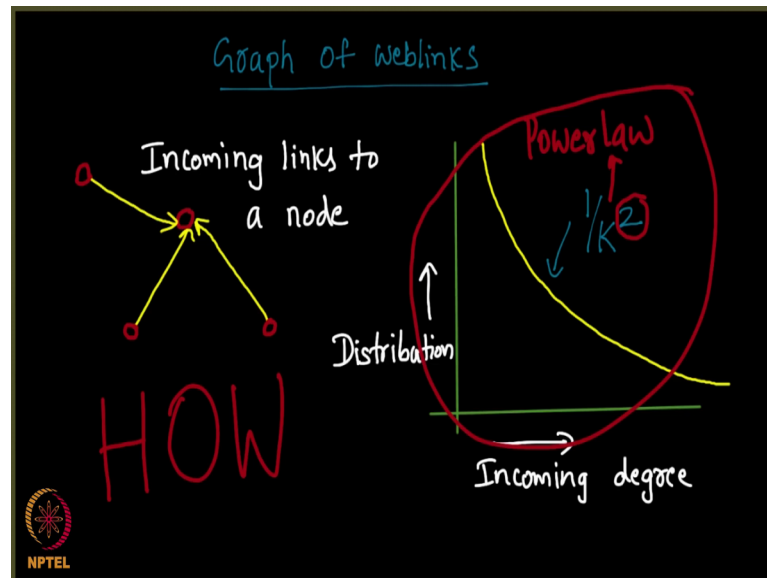 Graph of weblinks
Incoming links to
a node
Power law
1/K²
Distribution
Incoming degree
HOW
NPTEL